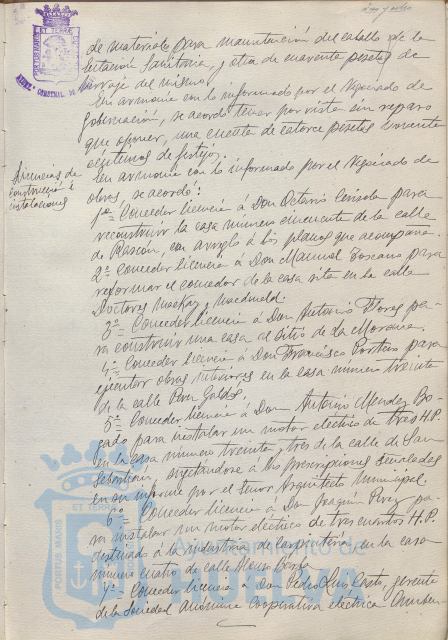 de materiales para manutención del caballo de la
estación Sanitaria, y otra de cuarenta pesetas de
herraje del mismo.
En armonía con lo informado por el Negociado de
Gobernación, se acordó tener por vista sin reparo
que oponer, una cuenta de catorce pesetas noventa
céntimos de festejos.
Licencias de
construcción é
instalaciones
En armonía con lo informado por el Negociado de
obras, se acordó:
1º= Conceder licencia á Don Octavio para
reconstruir la casa número cincuenta de la calle
de Rascón, con arreglo á los planos que acompaña.
2º= Conceder licencia á Don Manuel Toscano para
reformar el comedor de la casa sita en la calle
Doctores Mackay y Macdonald.
3º= Conceder licencia á Don Antonio Flores pa-
ra construir una casa al sitio de La Morana.
4º= Conceder licencia á Don Francisco para
ejecutar obras interiores en la casa número treinta
de la calle Perez Galdós.
5º= Conceder licencia á Don Antonio Mendez Bo-
gado para instalar un motor eléctrico de tres H.P.
en la casa número treinta y tres de la calle de San
Sebastian, sujetandose á las prescripciones señaladas
en su informe por el Señor Arquitecto Municipal.
6º= Conceder licencia á Don Joaquín Perez pa-
ra instalar un motor eléctrico de tres cuartos H.P.
destinado á la industria de carpintería en la casa
número cuatro de calle Alonso
7º= Conceder licencia á Don Pedro Luis Casto, gerente
de la Sociedad Anónima Cooperativa eléctrica
Ayuntamiento de
HUELVA
PORTUS MARIS ET TERRE CUSTODIA